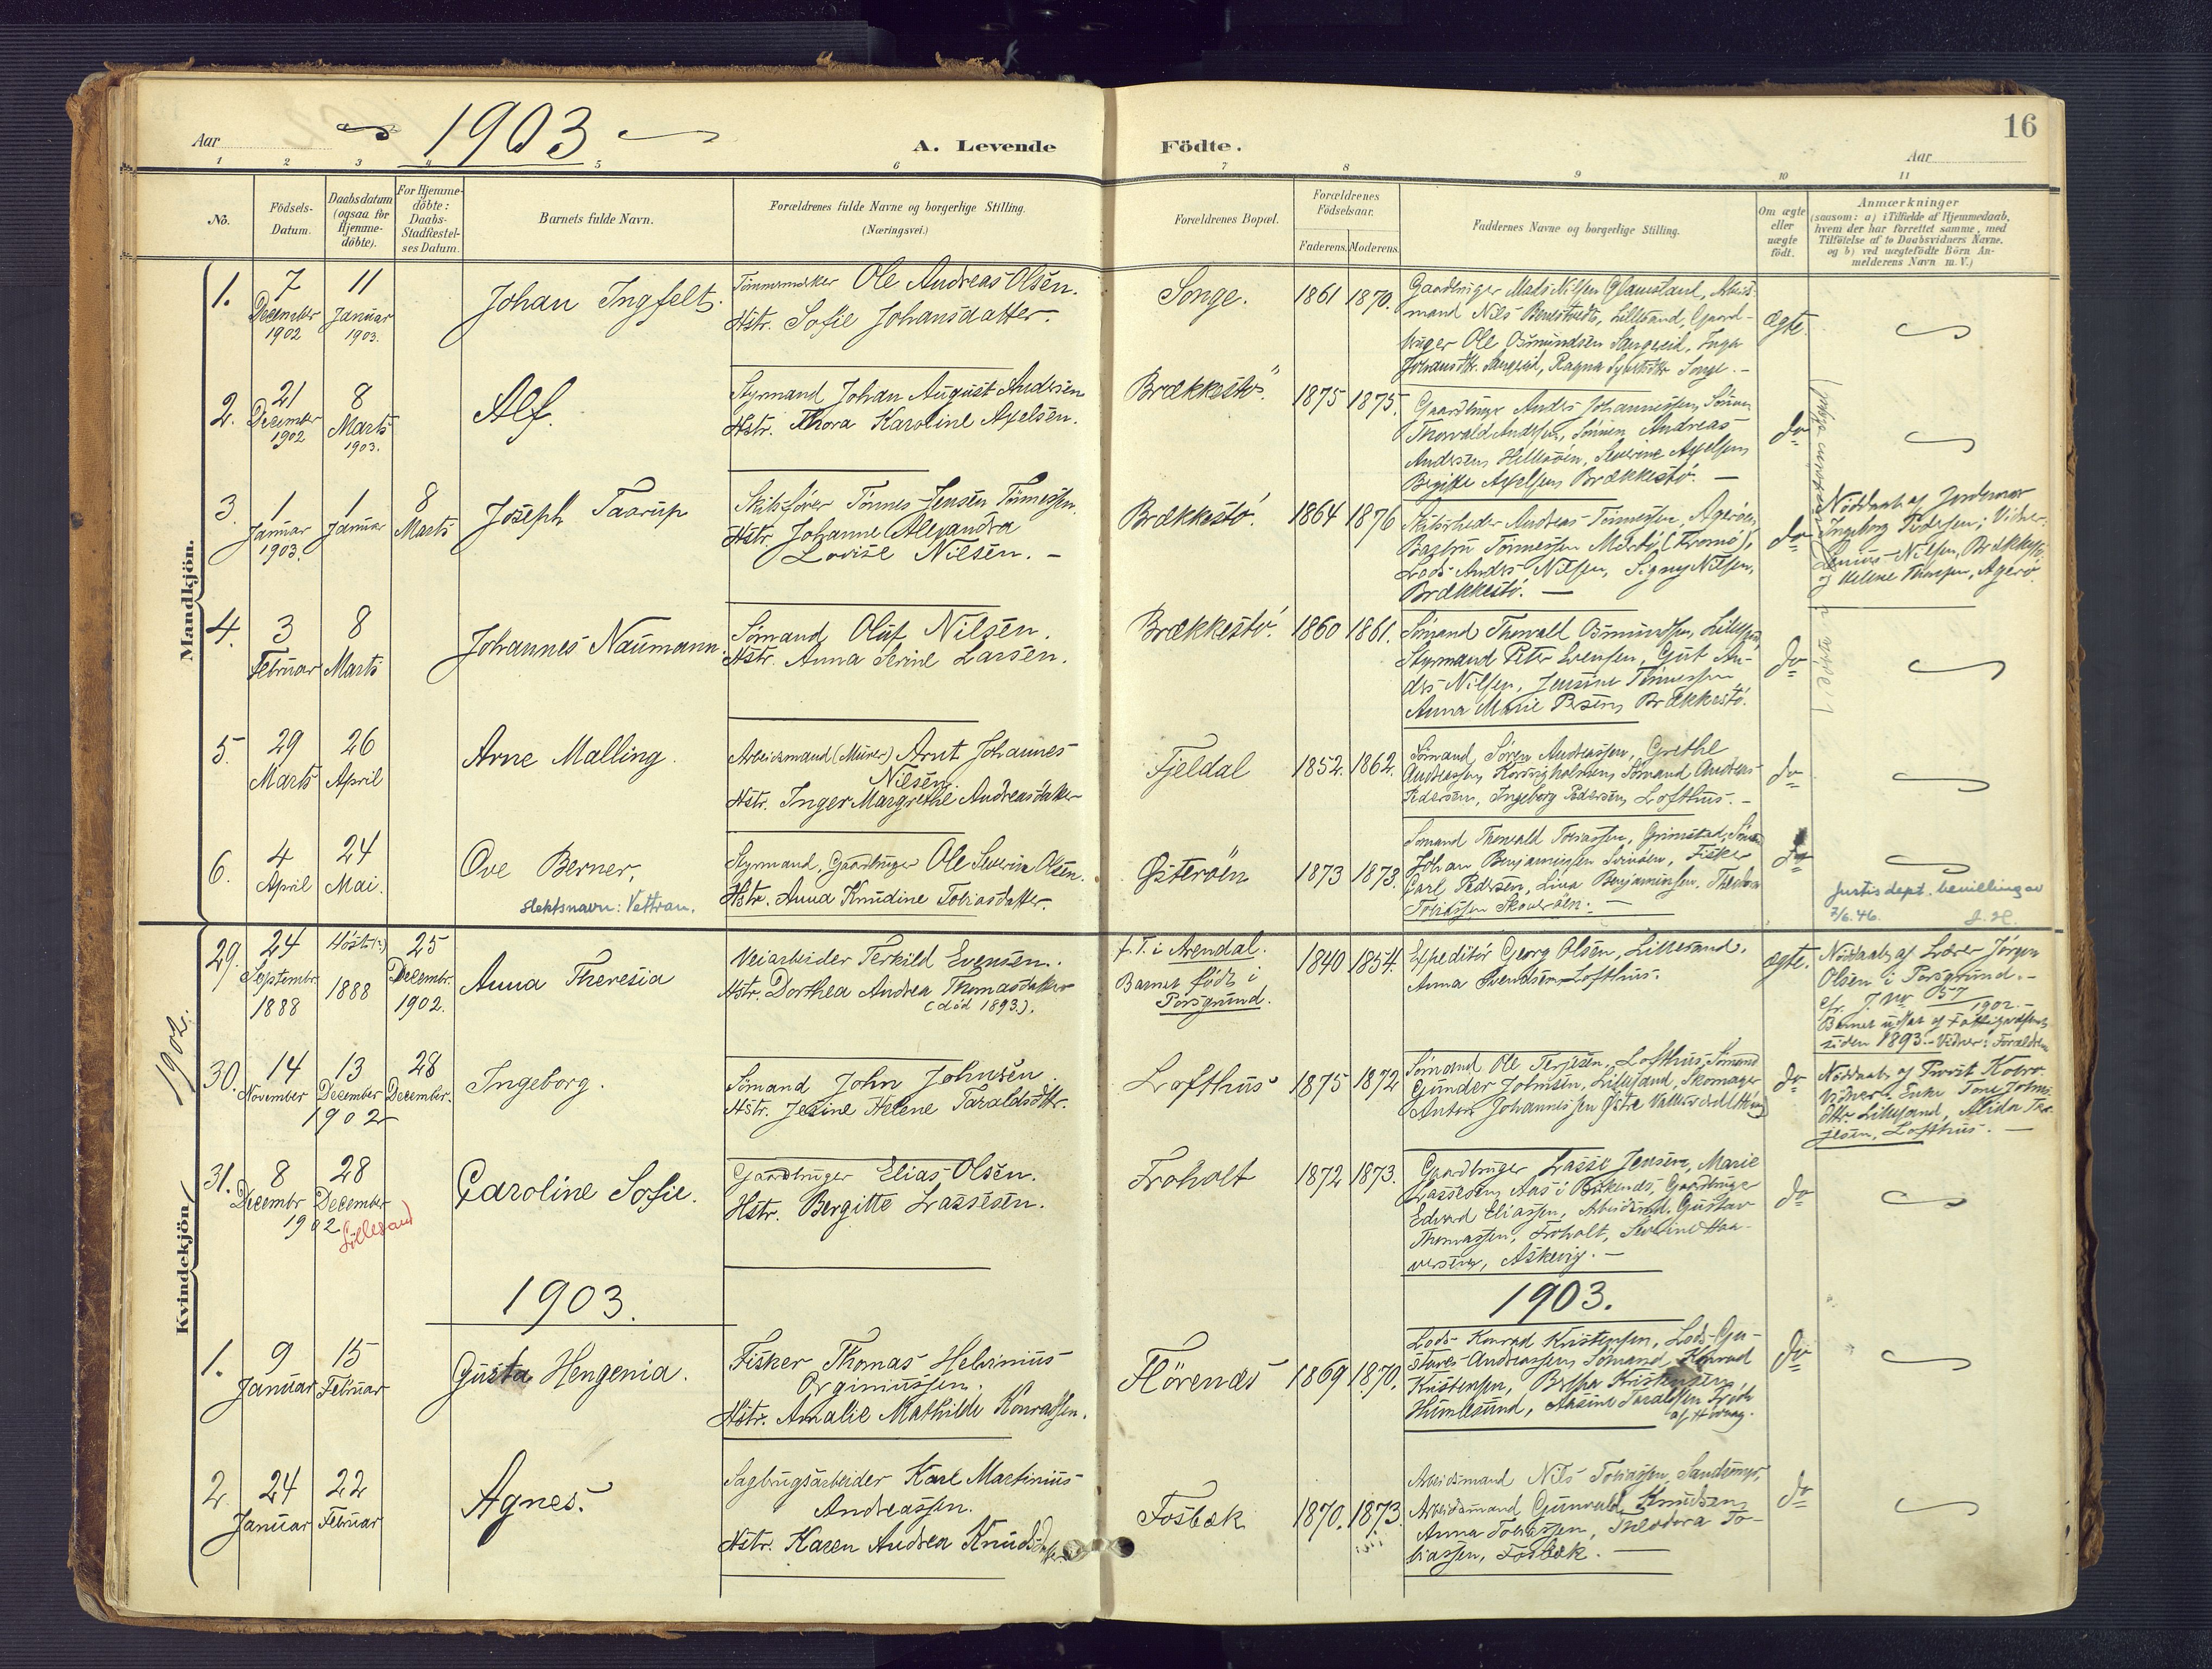 Aar 1903
A. Levende Födte.
16
Aar
1 2 3 4 5 6 7 8 9 10 11
No.
Födsels-Datum.
Daabsdatum (ogsaa for Hjemme-döbte).
For Hjemme-döbte: Daabs-Stadfæstel-ses Datum.
Barnets fulde Navn.
Forældrenes fulde Navne og borgerlige Stilling. (Næringsvei.)
Forældrenes Bopæl.
Forældrenes Födselsaar.
Faderens. Moderens.
Faddernes Navne og borgerlige Stilling.
Om ægte eller uægte födt.
Anmærkninger
(saasom: a) i Tilfælde af Hjemmedaab,
hvem der har forrettet samme, med
Tilföielse af to Daabsvidners Navne,
og b) ved uægtefödte Börn An-
melderens Navn m. V.)
Mandkjön.
1.
7 December 1902
11 Januar 1903.
Johan Ingfelt.
Tömmermæker Ole Andreas Olsen.
Hstr. Sofie Johansdatter.
Songe.
1861 1870.
Gaardbruger Mads Nilsen Glamsland, Arbeids-
mand Nils, Lillesand, Gaard-
bruger Ole Osmundsen Sangereid, Inga
Johansdtr. Sangereid, Ragna Songe.
ægte.
2.
21 December 1902
8 Marts 1903.
Alf.
Styrmand Johan August Andersen
Hstr. Thora Karoline Axelsen.
Brækkestö.
1875 1875.
Gaardbruger Anders Johannessen, Sönnen
Thorvald Andersen, Sönnen Andreas
Andersen Hellesöen, Severine Axelsen,
Birgitte Axelsen Brækkestö.
do
3.
1 Januar 1903.
1 Januar
8 Marts
Joseph Taarup
Skibsförer Tönnes Jensen Tönnessen.
Hstr. Johanne Alexandra
Lovise Nilsen.
Brækkestö.
1864 1876
Skibsrheder Andreas Tönnessen, Ageröen,
Tönnessen (Tromö),
Lods Anders Nilsen, Signy Nilsen,
Brækkestö.
do
Nöddaab af Jordmor
Ingeborg Pedersen; Vidner:
Nilsen, Brækkestö
og Helene Tönnessen, Agerö.
4.
3 Februar
8 Marts
Johannes Naumann.
Sömand Oluf Nilsen.
Hstr. Anna Serine Larsen.
Brækkestö.
1860 1861.
Sömand Thorvald Osmundsen, Lillesand,
Styrmand Peter Evensen, Gut An-
ders Nilsen, Jensine Tönnessen,
Anna Marie Brækkestö.
do
5.
29 Marts
26 April
Arne Malling.
Arbeidsmand (Murer) Arnt Johannes
Nilsen.
Hstr. Inger Margrethe Andreasdatter
Fjeldal
1852. 1862.
Sömand Sören Andreassen, Grethe
Andreassen, Sömand Andreas
Pedersen, Ingeborg Pedersen, Lofthus.
do
6.
4 April
24 Mai.
Ove Berner,
slektsnavn: Vettran.
Styrmand, Gaardbruger Ole Severin Olsen.
Hstr. Anna Knudine Tobiasdatter.
Österöen
1873 1873.
Sömand Thorvald Tobiassen, Grimstad,
Johan Benjaminsen, Fisker
Carl Pedersen, Lina Benjaminsen, Theodora
Tobiassen
do
Justisdept. bevilling av
7/6. 46.
1902.
Kvindekjön
29.
24 Septembr. 1888
Höst(?) 1888
25 Decembr. 1902.
Anna Theresia
Veiarbeider Terkild Evensen.
Hstr. Dorthea Andrea Thomasdatter
(död 1893).
f. T. i Arendal.
Barnet födt i
Porsgrund.
1840 1854.
Expeditör Georg Olsen, Lillesand.
Anna Svendsen Lofthus.
ægte.
Nöddaab af Lærer Jörgen
Olsen i Porsgrund.
cfr. J. No 57 1902.
Barnet
siden 1893. Vidner: Forældrene
30.
14 November
13 December
28 December.
1902
Ingeborg.
Sömand John Johnsen.
Hstr. Jesine Helene Taraldsdttr.
Lofthus
1875 1872
Sömand Ole Terjesen, Lofthus, Sömand
Gunder Johnsen, Lillesand, Skomager
Anton Johannessen Östre
do
Nöddaab af Provst
Vidner: Enke Tone Johns-
dttr. Lillesand, Alida Ter-
jesen, Lofthus.
31.
8 Decembr
28 December
1902
Lillesand
Caroline Sofie.
Gaardbruger Elias Olsen.
Hstr. Bergitte Lassesen.
Froholt
1872 1873.
Gaardbruger Lasse Jensen, Marie
Lassesen, Aas i Birkenes, Gaardbruger
Edvard Eliassen, Arbeidsmd. Gustav
Thomassen, Froholt, Severine Haa-
versen, Askevig.
do
1903.
1903.
1.
9 Januar
15 Februar
Gusta Hengenia.
Fisker Thomas Helvinius
Orginiussen.
Hstr. Amalie Mathilde Konradsen.
Hörenes
1869 1870.
Lods Konrad Kristensen, Lods Gu-
staves Andreassen, Sömand Konrad
Kristensen, Kristensen,
Humlesund, Aasine Taraldsen
af Hövaag.
do
2.
24 Januar
22 Februar
Agnes.
Sagbrugsarbeider Karl Martinius
Andreassen.
Hstr. Karen Andrea Knudsdatter
Fosbæk
1870. 1873.
Arbeidsmand Nils Tobiassen, Sandsmyr,
Arbeidsmand Gunvald Knudsen,
Anna Tobiassen, Theodora To-
biassen, Fosbæk.
do